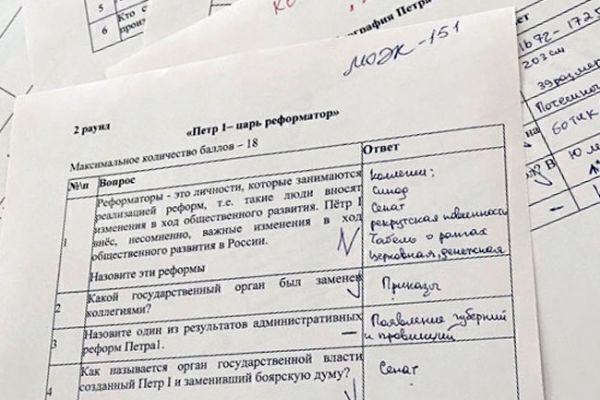 5
6
Кто с
ография Петра
ответ
1672-1725
203 см
39 размер
ботик
на
МОЭК-151
2 раунд
«Петр I– царь реформатор»
Максимальное количество баллов – 18
№\п Вопрос Ответ
1
Реформаторы - это личности, которые занимаются
реализацией реформ, т.е. такие люди вносят
изменения в ход общественного развития. Пётр I
внёс, несомненно, важные изменения в ход
общественного развития в России.
Назовите эти реформы
Коллегии:
Синод
Сенат
рекрутская повинность
Табель о рангах
Церковная, денежная
2
Какой государственный орган был заменен
коллегиями?
Приказы
3
Назовите один из результатов административных
реформ Петра1.
Появление губерний
и провинций
4
Как называется орган государственной власти
созданный Петр I и заменивший боярскую думу?
Сенат